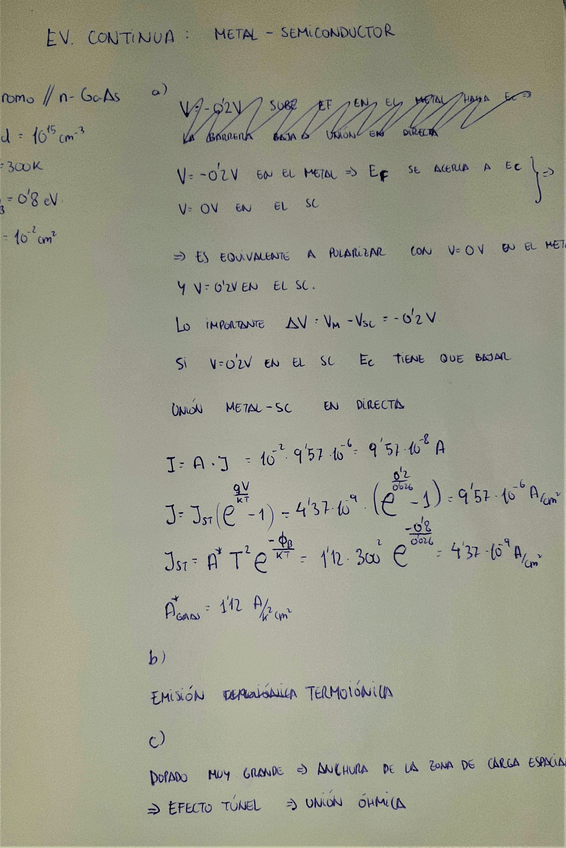 EV. CONTINUA: METAL-SEMICONDUCTOR
romo // n-GaAs
d = 10¹⁵ cm⁻³
= 300K
B = 0'8 eV
= 10⁻² cm²
a)
V=-0'2V SUBE EF EN EL METAL HACIA EC ⇒
LA BARRERA BAJA ⇒ UNIÓN EN DIRECTA
V=-0'2V EN EL METAL ⇒ EF SE ACERCA A EC } ⇒
V=0V EN EL SC
⇒ ES EQUIVALENTE A POLARIZAR CON V=0V EN EL MET
Y V=0'2V EN EL SC.
LO IMPORTANTE ΔV=VM-VSC=-0'2V
SI V=0'2V EN EL SC EC TIENE QUE BAJAR
UNIÓN METAL-SC EN DIRECTA
I=A·J = 10⁻²·9'57·10⁻⁶ = 9'57·10⁻⁸ A
J=JST(e^(qV/KT)-1) = 4'37·10⁻⁹·(e^(0'2/0'026)-1) = 9'57·10⁻⁶ A/cm²
JST=A*T²e^(-ϕB/KT) = 1'12·300² e^(-0'8/0'026) = 4'37·10⁻⁹ A/cm²
A*GaAs = 1'12 A/K²cm²
b)
EMISIÓN TERMOIÓNICA
c)
DOPADO MUY GRANDE ⇒ ANCHURA DE LA ZONA DE CARGA ESPACIA
⇒ EFECTO TÚNEL ⇒ UNIÓN ÓHMICA